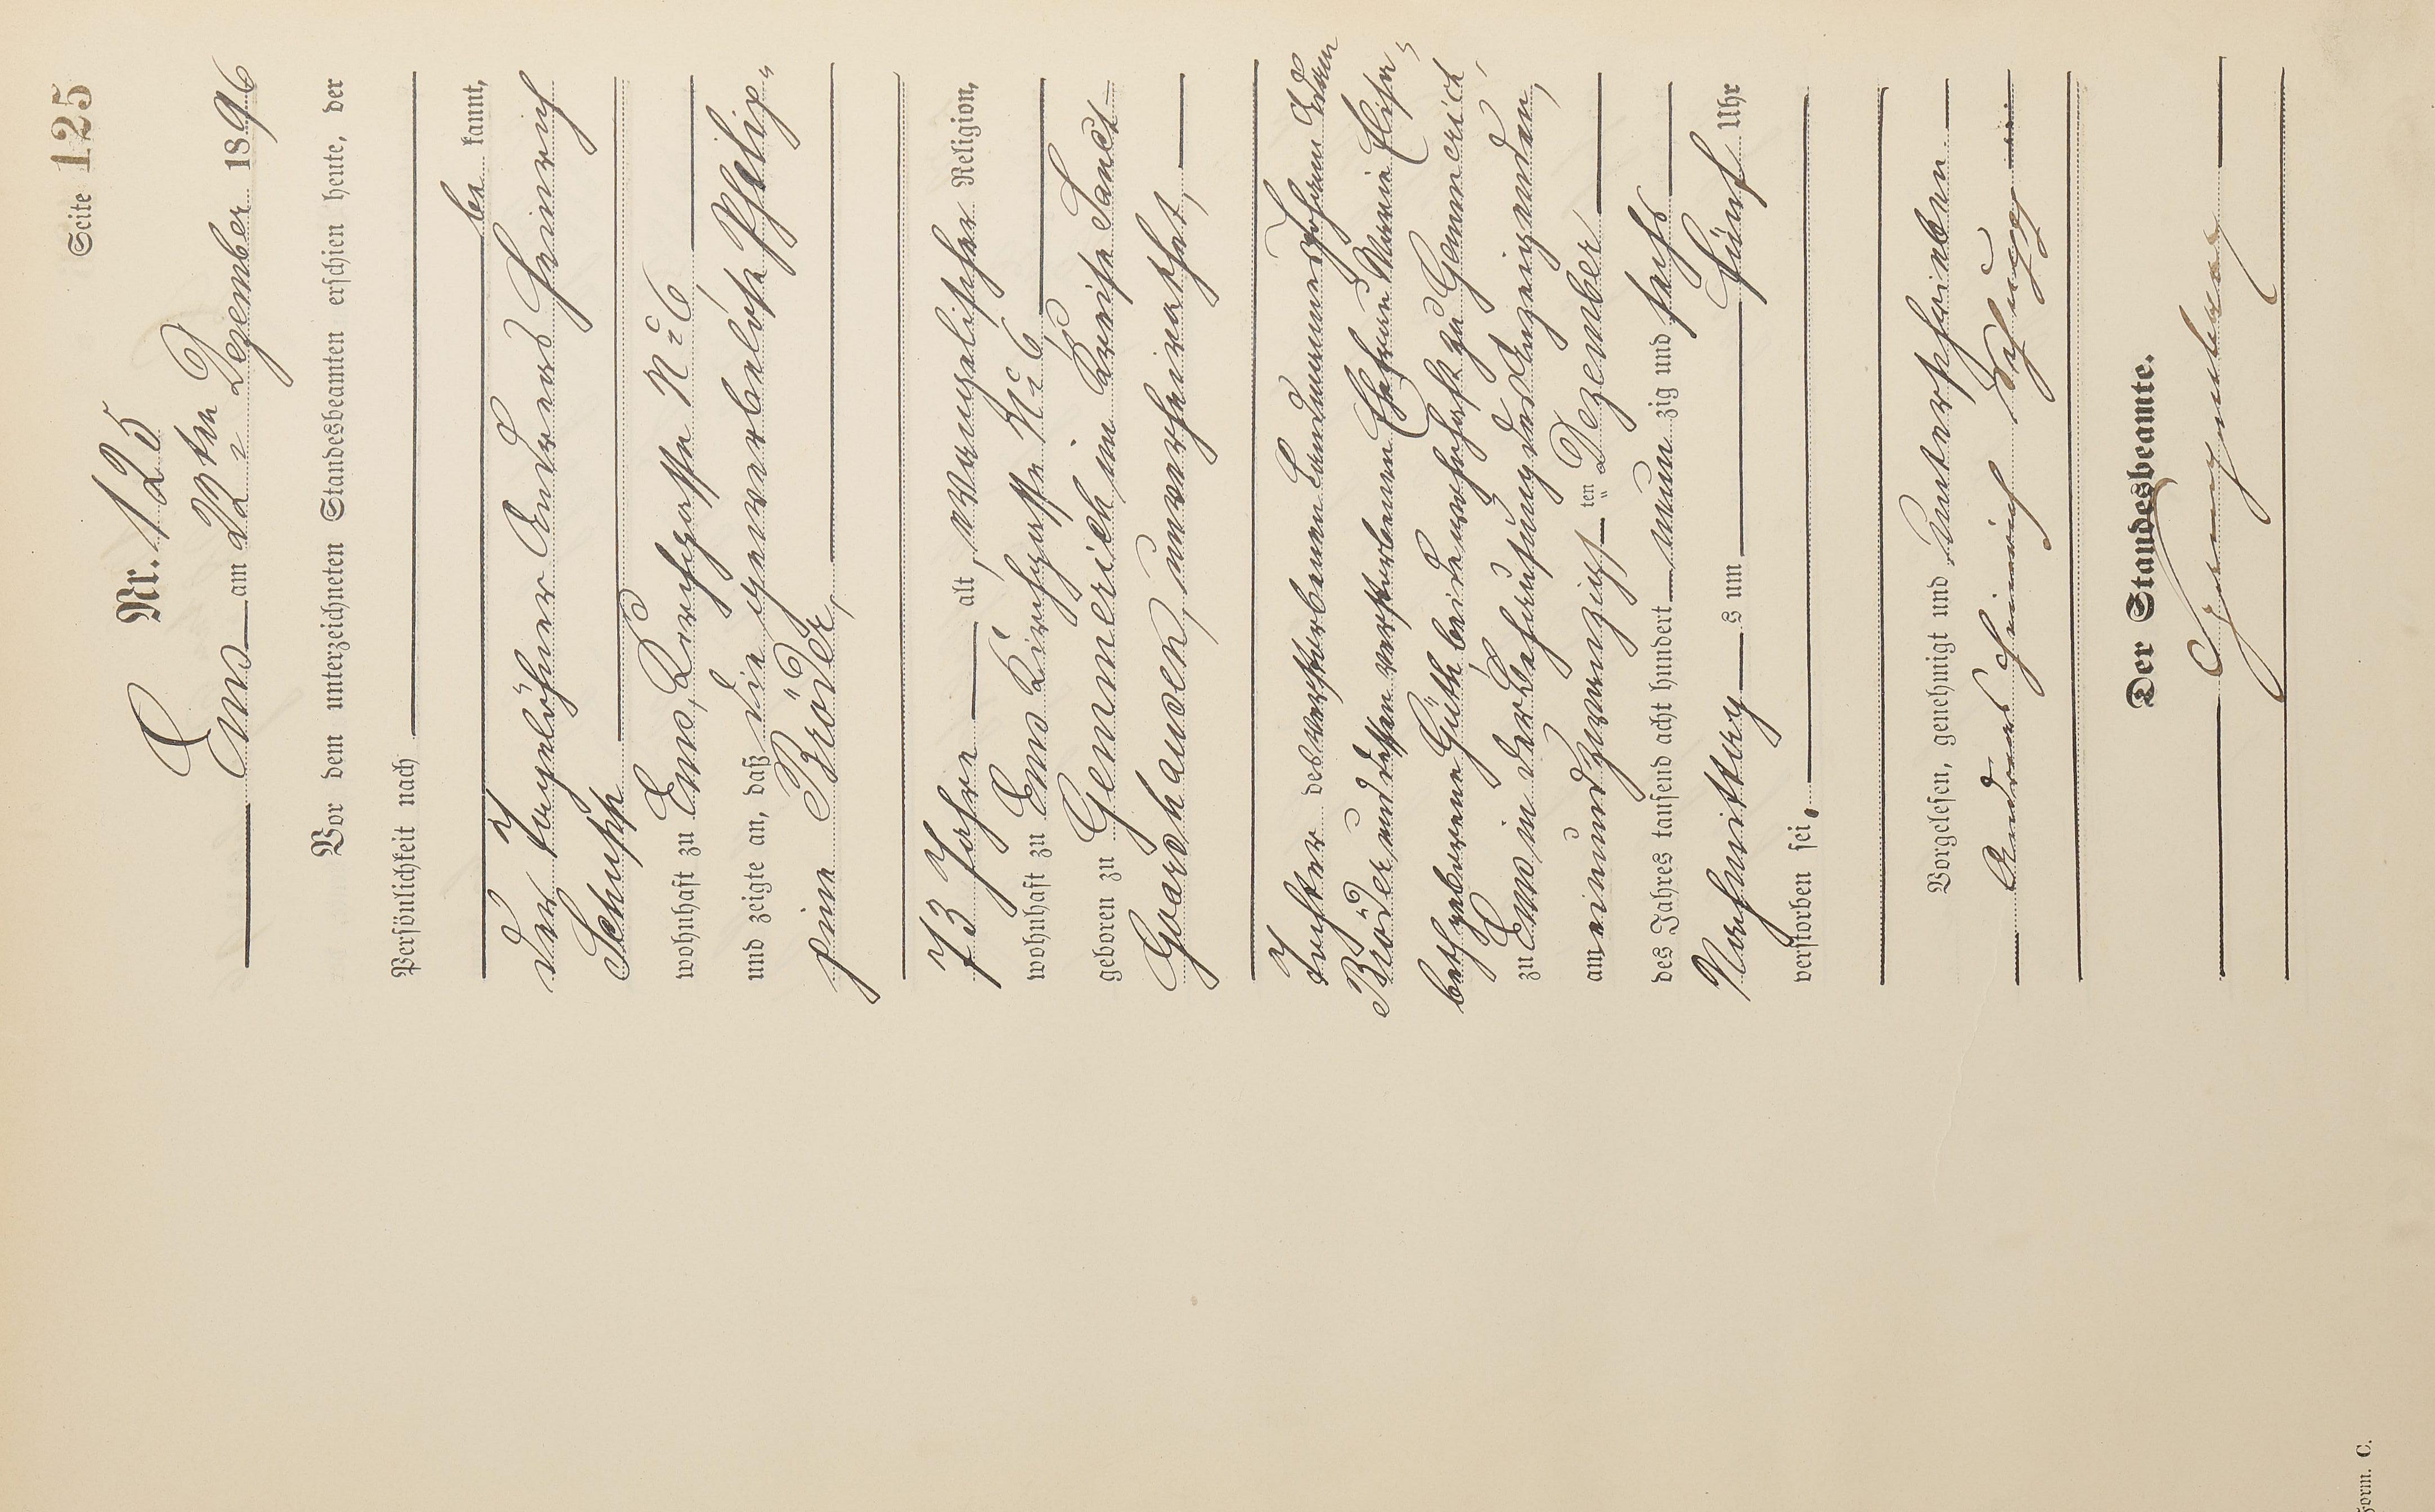 Seite 125
Nr. 125
Ems am 22ten Dezember 1896
Vor dem unterzeichneten Standesbeamten erschien heute, der
Persönlichkeit nach
be kannt,
der Tagelöhner Andreas Heinrich
Schupp
wohnhaft zu Ems, Kirchgasse No 6
und zeigte an, daß die gewerbelose Philip„
pine Bröder,
73 Jahre alt, evangelischer Religion,
wohnhaft zu Ems Kirchgasse No 6
geboren zu Gemmerich im Kreise Sanct
Goarshausen, unverheirathet,
Tochter des verstorbenen Landmannes Johann
Bröder und dessen verstorbenen Ehefrau Marie Elisa„
beth geborene Güth beide wohnhaft zu Gemmerich,
zu Ems in der Behausung des Anzeigenden,
am einundzwanzigsten Dezember
des Jahres tausend acht hundert neun zig und sechs
Nachmittags um fünf Uhr
verstorben sei.
Vorgelesen, genehmigt und unterschrieben
Andreas Heinrich Schupp
Der Standesbeamte.
Form. C.